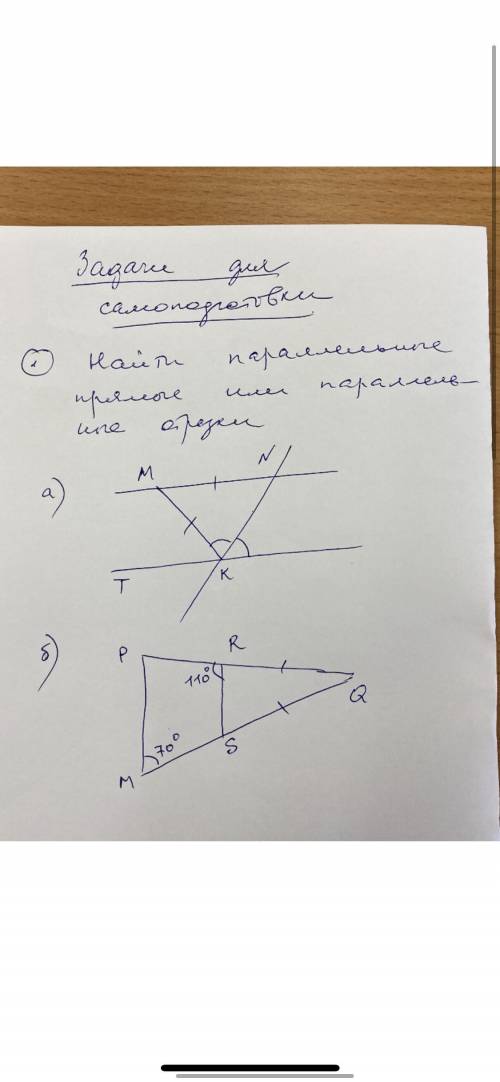 Задачи для
самоподготовки
1 Найти параллельные
прямые или параллель-
ные отрезки
а)
M N
T K
б)
P R
110°
Q
70° S
M